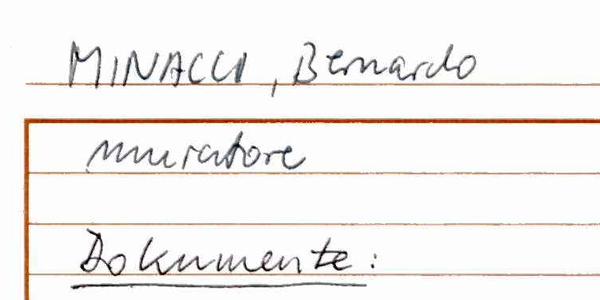 MINACCI, Bernardo
muratore
Dokumente: